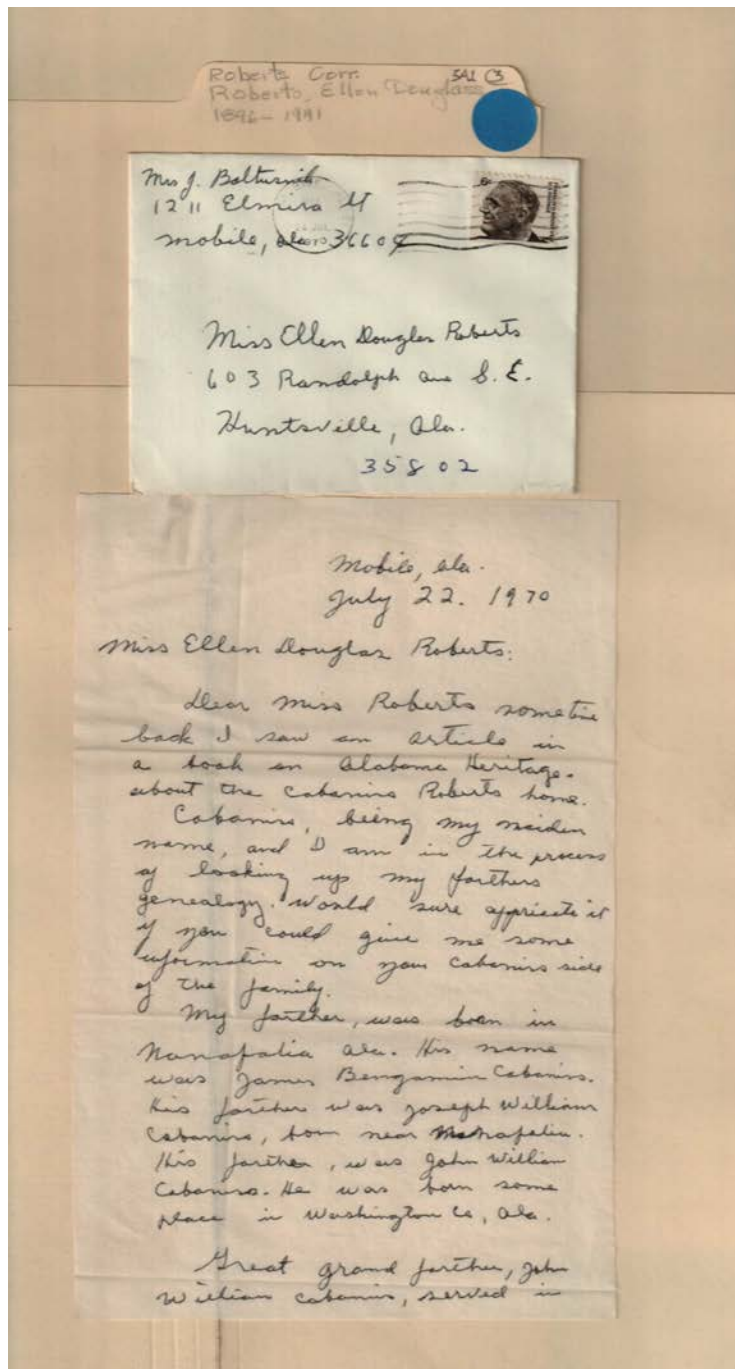 Roberts Corr. 3A1 (3
Roberts, Ellen Douglass
1896-1991
Mrs J.
1211 Elmira St
Mobile, Ala 36604
6¢
Miss Ellen Douglas Roberts
603 Randolph ave S.E.
Huntsville, Ala.
35802
Mobile, Ala.
July 22. 1970
Miss Ellen Douglas Roberts:
Dear Miss Roberts sometime
back I saw an article in
a book on Alabama Heritage.
about the Cabaniss Roberts home.
Cabaniss, being my maiden
name, and I am in the process
of looking up my farthers
genealogy. Would sure appriciate it
if you could give me some
information on your Cabaniss side
of the family.
My farther, was born in
Nanafalia Ala. His name
was James Bengamin Cabaniss.
His farther was Joseph William
Cabaniss, born near Nanafalia.
His farther, was John William
Cabaniss. He was born some
place in Washington Co, Ala.
Great grand farther, John
William Cabaniss, served in